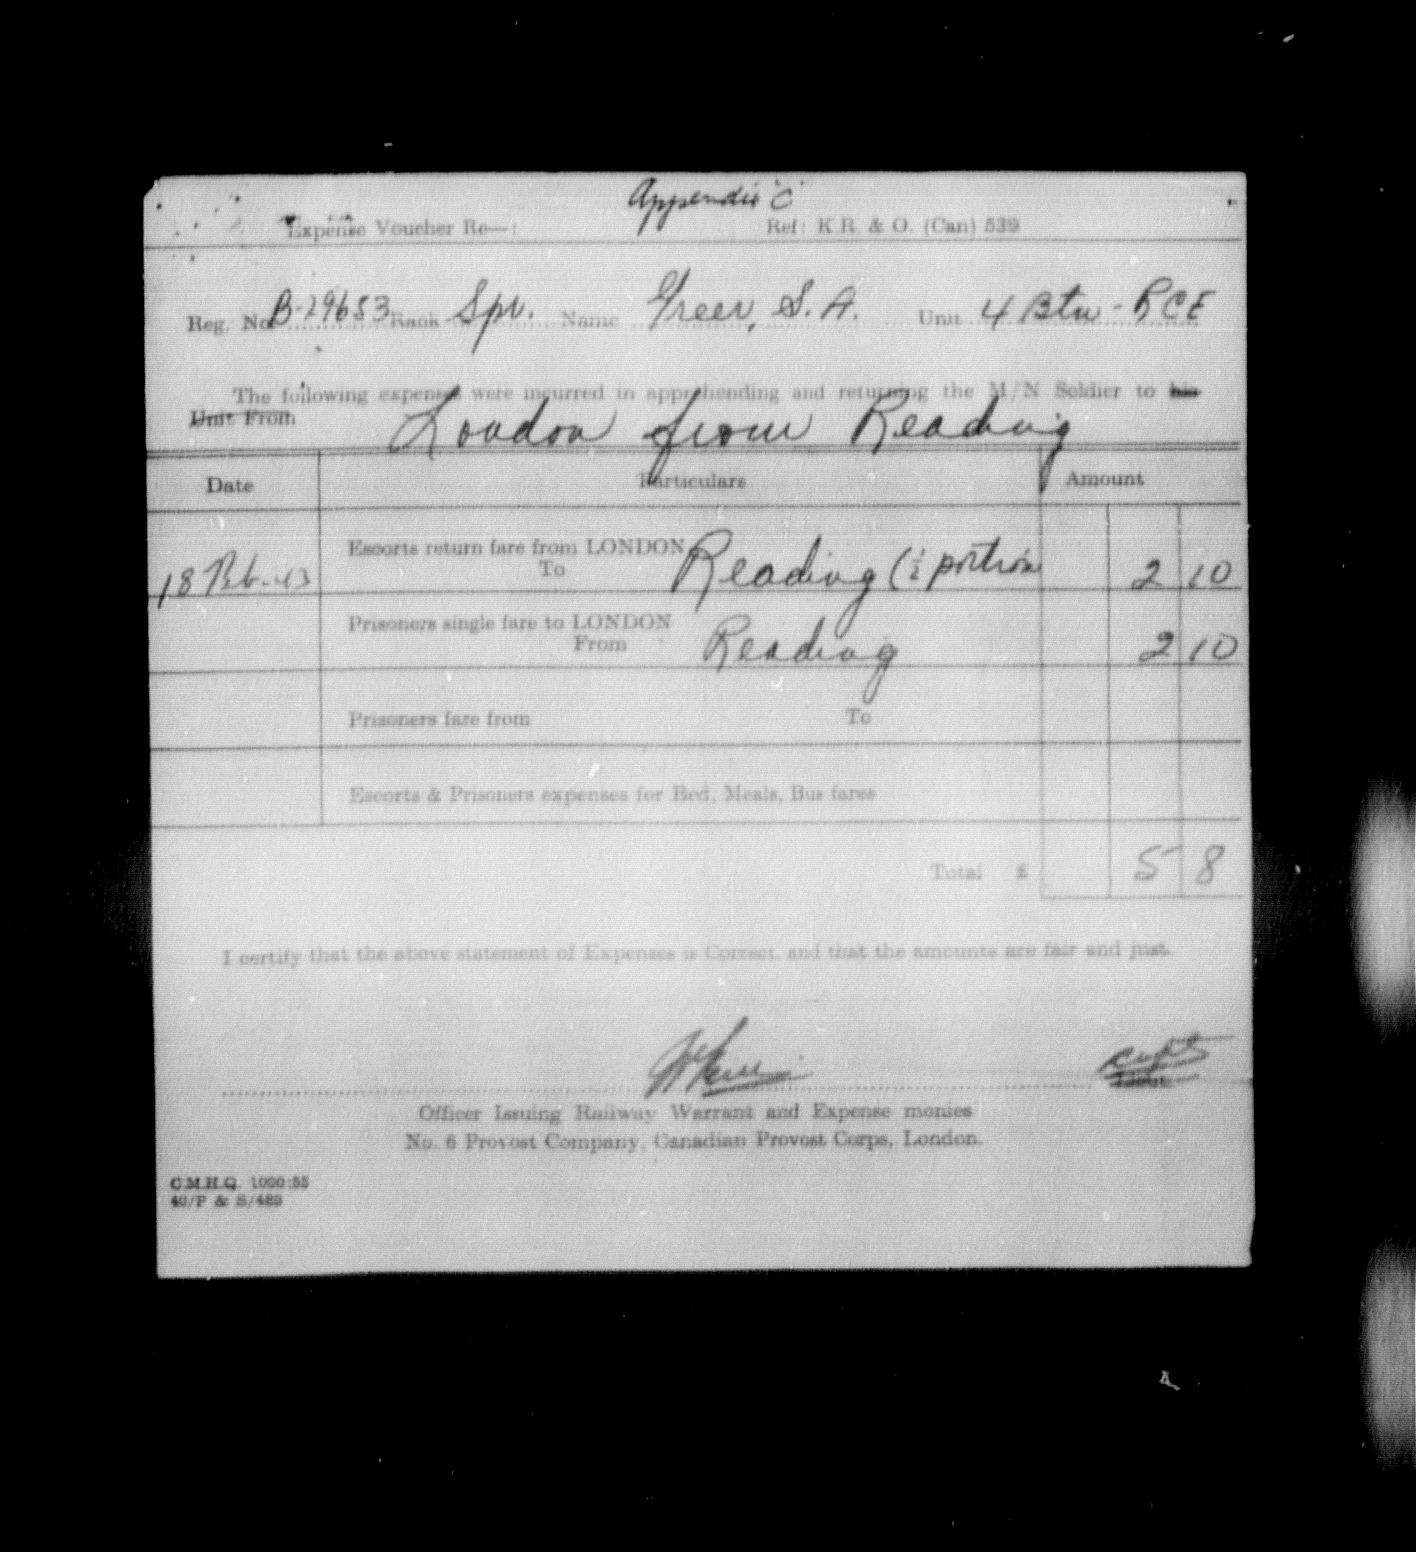 Appendix "C"
Expense Voucher Re—: Ref: K.R. & O. (Can) 539
Reg. No. B-29653 Rank Spr. Name Greer, S. A. Unit 4 Btn - RCE
The following expenses were incurred in apprehending and returning the M/N Soldier to his
Unit From London from Reading
Date Particulars Amount
Escorts return fare from LONDON
18 Feb-43 To Reading (½ portion 2 10
Prisoners single fare to LONDON
From Reading 2 10
Prisoners fare from To
Escorts & Prisoners expenses for Bed, Meals, Bus fares
Total £ 5 8
I certify that the above statement of Expenses is Correct, and that the amounts are fair and just.
Capt
Lieut.
Officer Issuing Railway Warrant and Expense monies
No. 6 Provost Company, Canadian Provost Corps, London.
C.M.H.Q. 1000:55
40/P & S/483